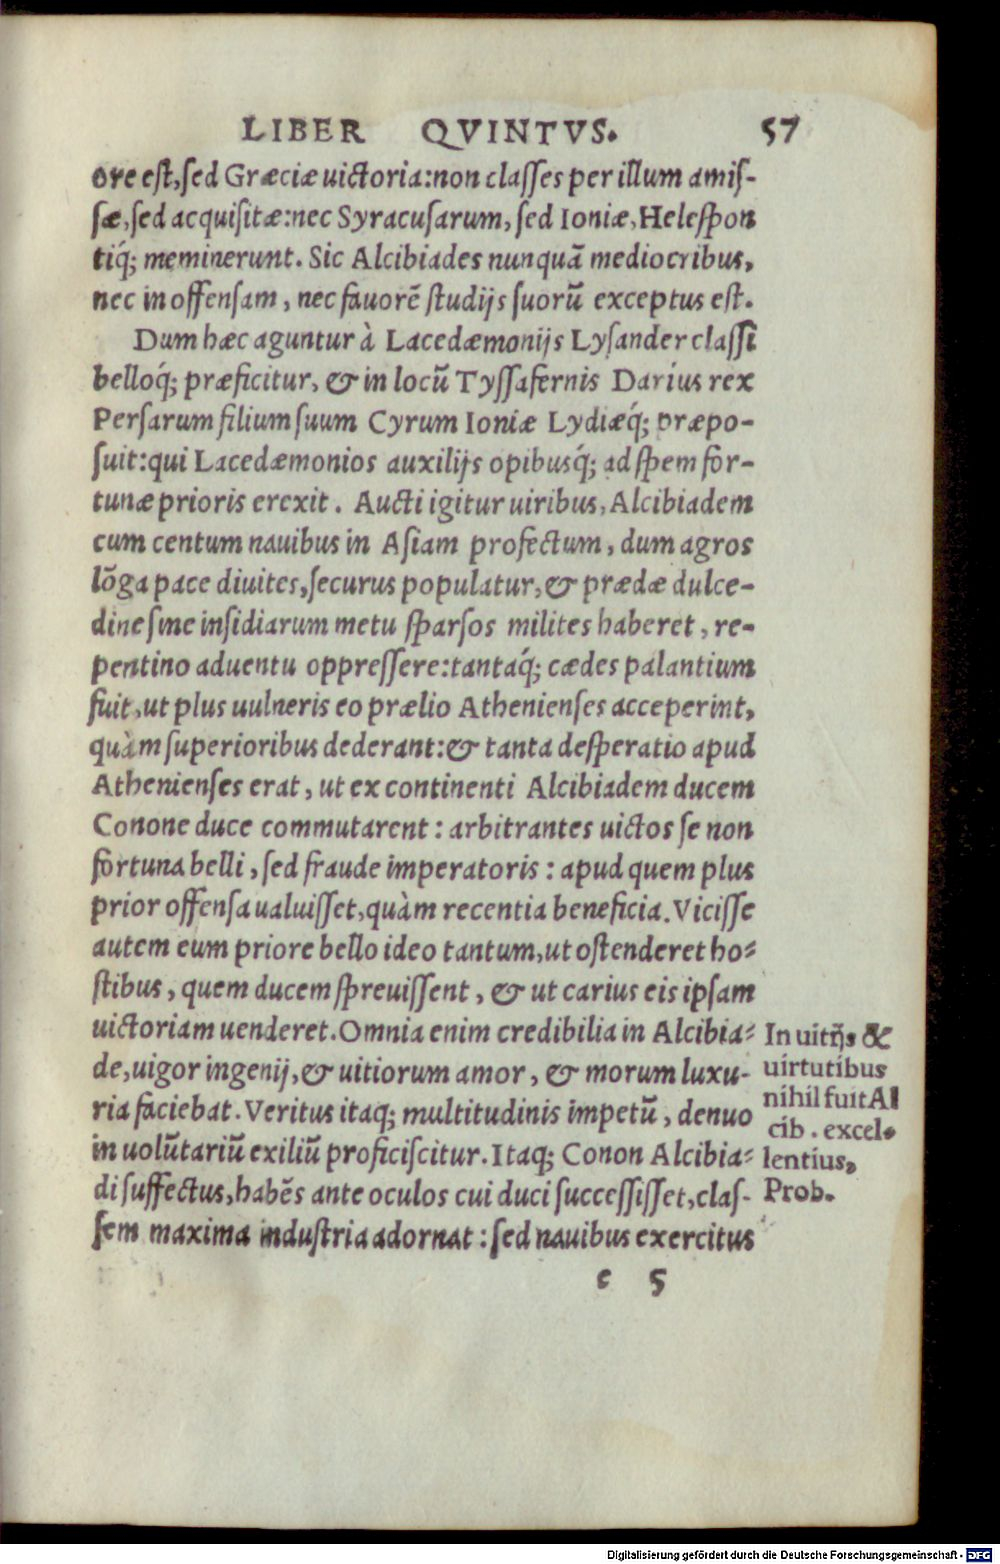 LIBER QVINTVS. 57
ore est, sed Græciæ uictoria: non classes per illum amis-
sæ, sed acquisitæ: nec Syracusarum, sed Ioniæ, Helespon
tiq́; meminerunt. Sic Alcibiades nunquā mediocribus,
nec in offensam, nec fauorē studijs suorū exceptus est.
Dum hæc aguntur à Lacedæmonijs Lysander classi
belloq́; præficitur, & in locū Tyssafernis Darius rex
Persarum filium suum Cyrum Ioniæ Lydiæq́; præpo-
suit: qui Lacedæmonios auxilijs opibusq́; ad spem for-
tunæ prioris erexit. Aucti igitur uiribus, Alcibiadem
cum centum nauibus in Asiam profectum, dum agros
lōga pace diuites, securus populatur, & prædæ dulce-
dine sine insidiarum metu sparsos milites haberet, re-
pentino aduentu oppressere: tantaq́; cædes palantium
fuit, ut plus uulneris eo prælio Athenienses acceperint,
quàm superioribus dederant: & tanta desperatio apud
Athenienses erat, ut ex continenti Alcibiadem ducem
Conone duce commutarent: arbitrantes uictos se non
fortuna belli, sed fraude imperatoris: apud quem plus
prior offensa ualuisset, quàm recentia beneficia. Vicisse
autem eum priore bello ideo tantum, ut ostenderet ho-
stibus, quem ducem spreuissent, & ut carius eis ipsam
uictoriam uenderet. Omnia enim credibilia in Alcibia-
de, uigor ingenij, & uitiorum amor, & morum luxu-
ria faciebat. Veritus itaq; multitudinis impetū, denuo
in uolūtariū exiliū proficiscitur. Itaq; Conon Alcibia-
di suffectus, habēs ante oculos cui duci successisset, clas-
sem maxima industria adornat: sed nauibus exercitus
In uitijs &
uirtutibus
nihil fuit Al
cib. excel-
lentius,
Prob.
c 5
Digitalisierung gefördert durch die Deutsche Forschungsgemeinschaft - DFG